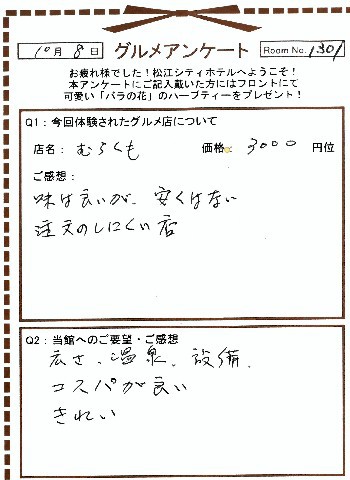 10月 8日 グルメアンケート Room No. 1301
お疲れ様でした！松江シティホテルへようこそ！
本アンケートにご記入戴いた方にはフロントにて
可愛い「バラの花」のハーブティーをプレゼント！
Q1：今回体験されたグルメ店について
店名：むらくも 価格 3000 円位
ご感想：
味は良いが、安くはない
注文のしにくい店
Q2：当館へのご要望・ご感想
広さ、温泉、設備、
コスパが良い
きれい